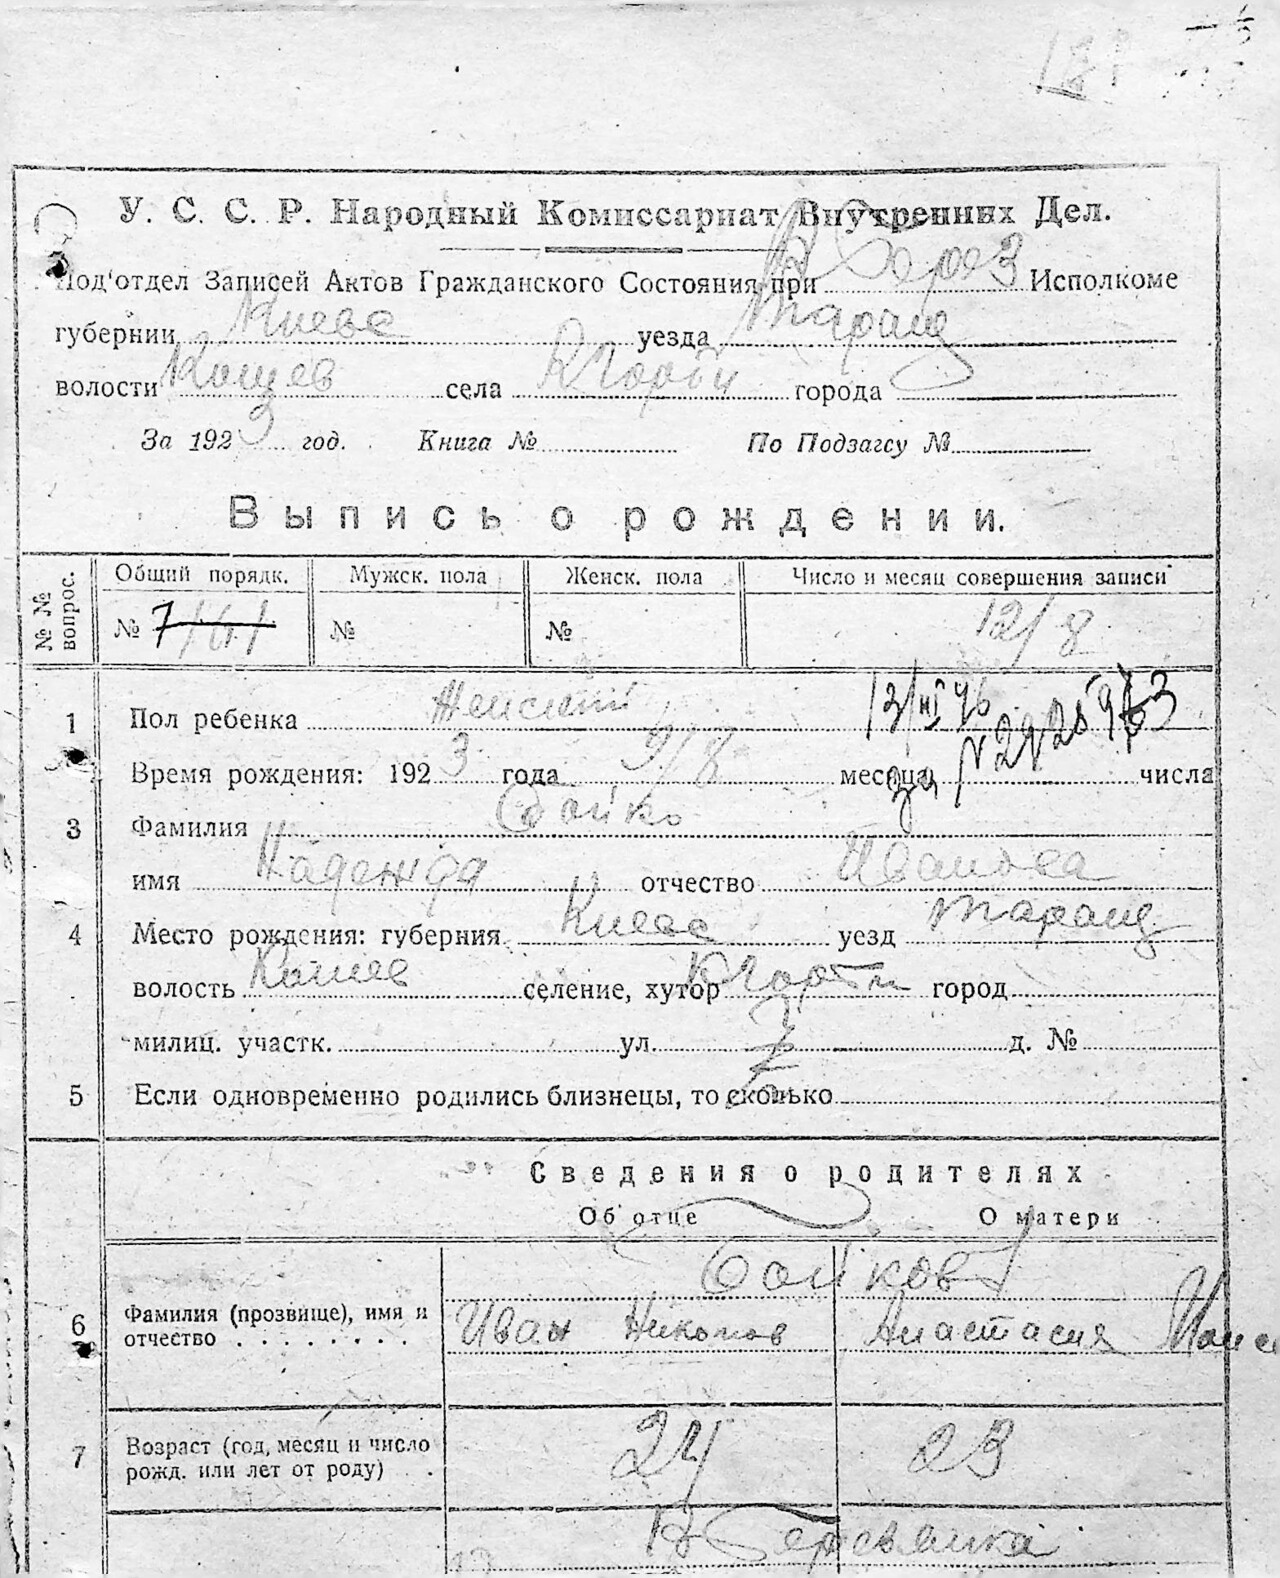 У. С. С. Р. Народный Комиссариат Внутренних Дел.
Под'отдел Записей Актов Гражданского Состояния при В Берез Исполкоме
губернии Киевс уезда Таращ
волости Кошев села города
За 1923 год. Книга № По Подзагсу №
Выпись о рождении.
№ № вопрос. Общий порядк. Мужск. пола Женск. пола Число и месяц совершения записи
№ № № 12/8
1 Пол ребенка Женский
Время рождения: 1923 года 9/8 месяца числа
3 Фамилия Бойко
имя Надежда отчество Иванова
4 Место рождения: губерния Киевс уезд Таращ
волость Кошев селение, хутор город
милиц. участк. ул. д. №
5 Если одновременно родились близнецы, то сколько
Сведения о родителях
Об отце О матери
6 Фамилия (прозвище), имя и
отчество
Иван Анастасия
7 Возраст (год, месяц и число
рожд. или лет от роду)
24 23